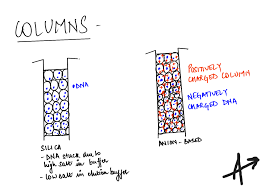 COLUMNS -
DNA
POSITIVELY
CHARGED COLUMN
NEGATIVELY
CHARGED DNA
SILICA
- DNA stuck due to
high salt in buffer
- low salt in elution buffer
ANION-BASED
A